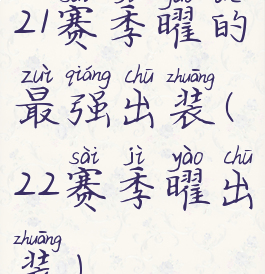 21赛季曜的
zuì qiáng chū zhuāng
最强出装(
sài jì yào chū
22赛季曜出
zhuāng
装)